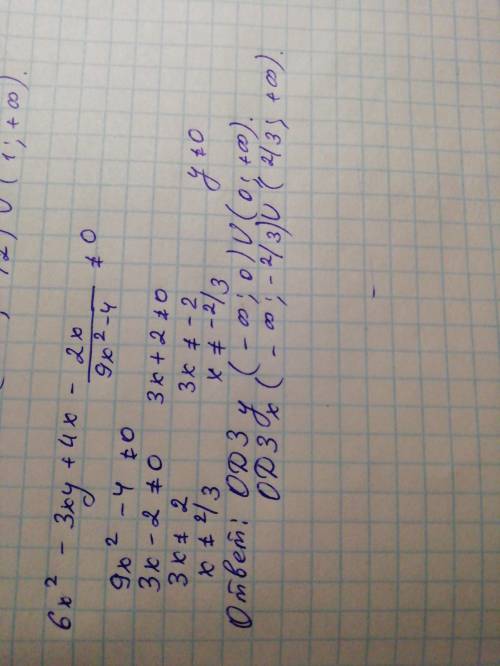 ) U ( 1 ; + ∞ ).
6x² - 3xy + 4x - 2x / 9x² - 4 ≠ 0
9x² - 4 ≠ 0
3x - 2 ≠ 0 3x + 2 ≠ 0
3x ≠ 2 3x ≠ -2 y ≠ 0
x ≠ 2/3 x ≠ -2/3
Ответ: ОДЗ y ( - ∞ ; 0 ) U ( 0 ; +∞ ).
ОДЗ x ( - ∞ ; - 2/3 ) U ( 2/3 ; + ∞ ).